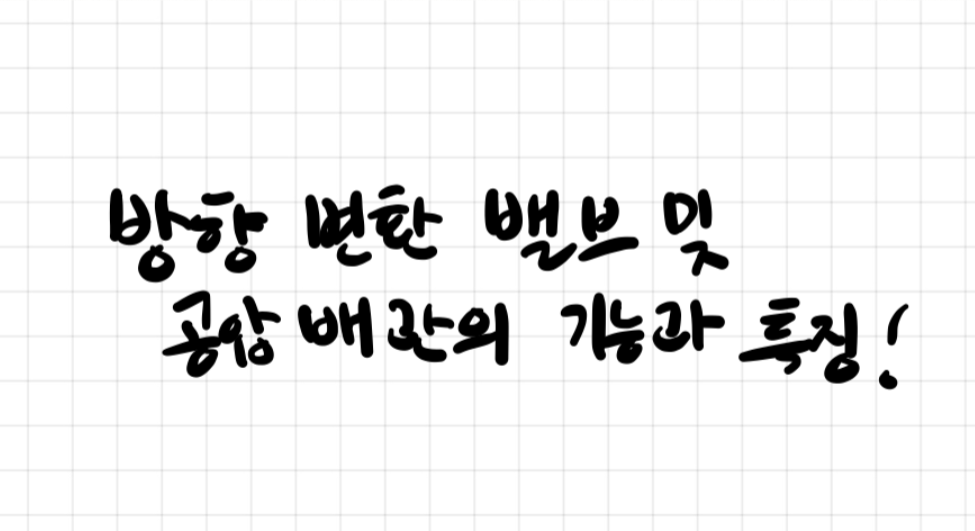 방향 변환 밸브 및
공압 배관의 기능과 특징!